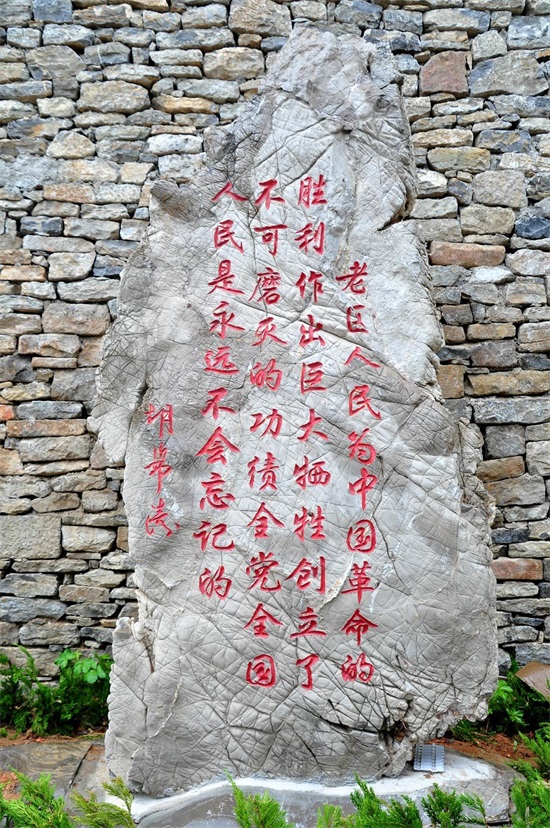 老区人民为中国革命的
胜利作出巨大牺牲创立了
不可磨灭的功绩全党全国
人民是永远不会忘记的
胡锦涛